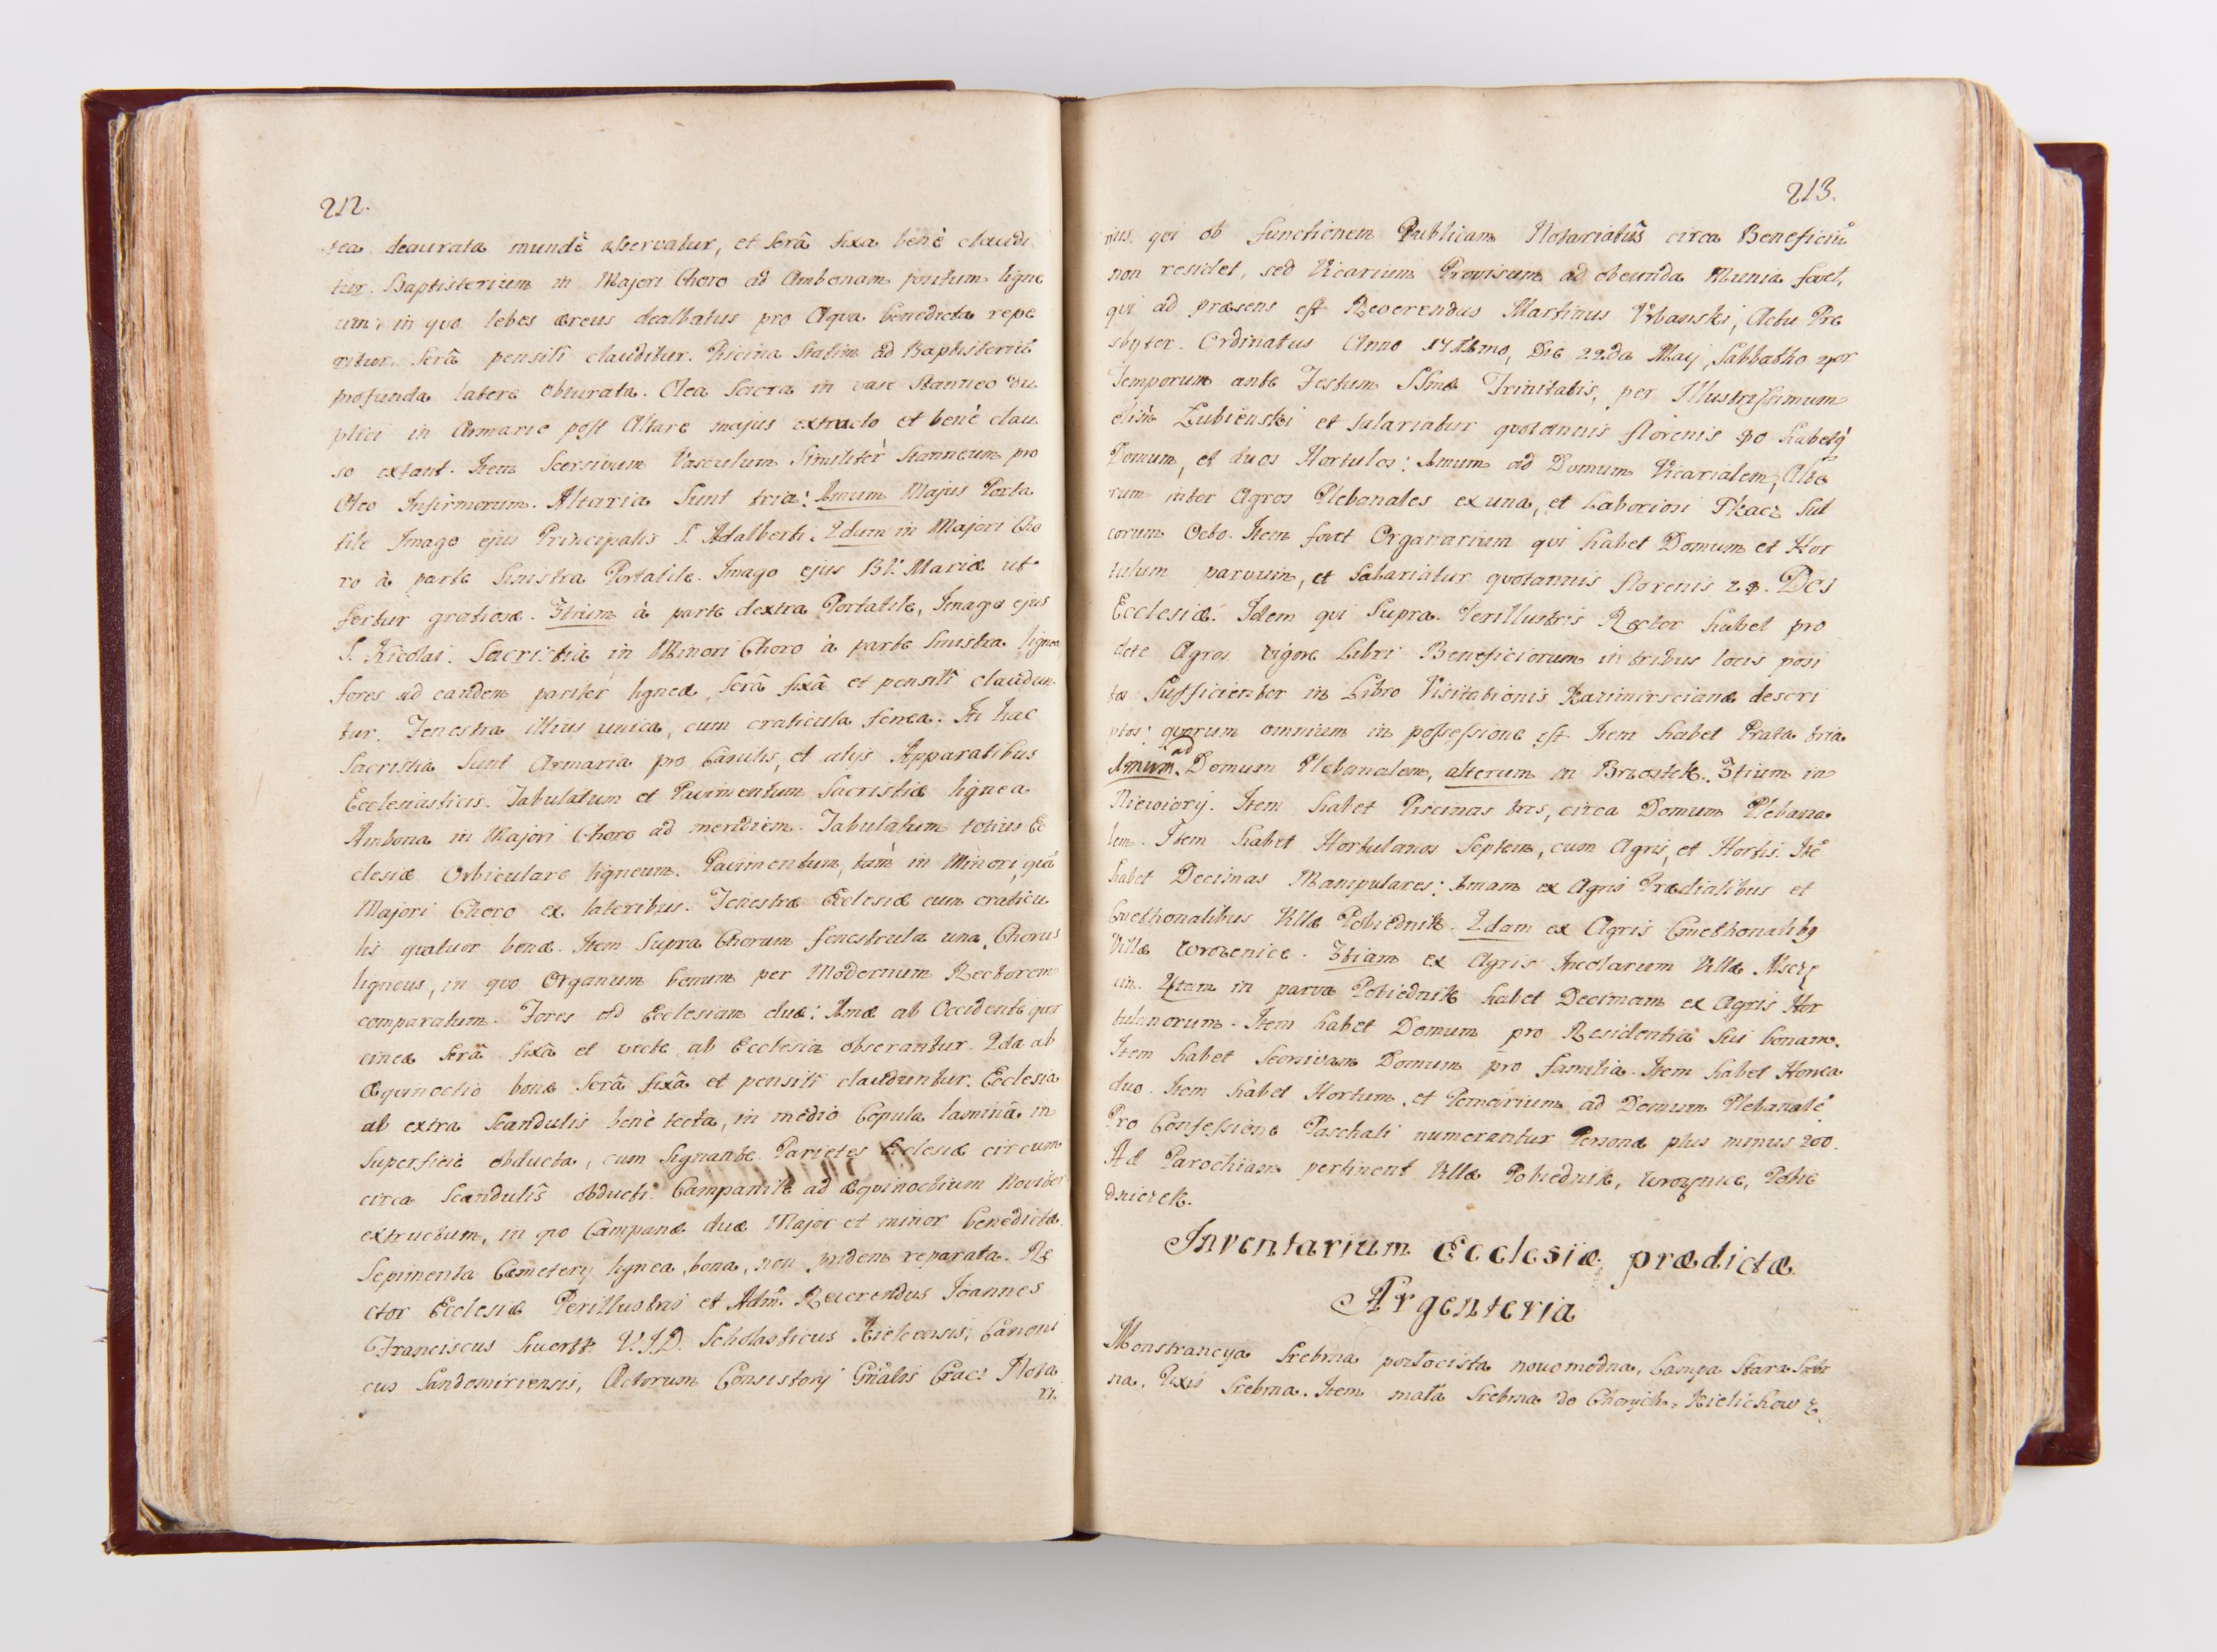 212.
tea deaurata mundè aservatur, et serâ fixa benè claudi
tur. Baptisterium in Majori Choro ad Ambonam positum ligne
um in quo lebes æreus dealbatus pro Aqua benedicta repe
ritur, serâ pensili clauditur. Piscina statim ad Baptisteriū
profunda latere obturata. Olea Sacra in vase Stanneo du
plici in Armario post Altare majus extructo et benè clau
so extant. Item Seorsivum Vasculum Similiter Stanneum pro
Oleo Infirmorum. Altaria Sunt tria: 1mum Majus Porta
tile Imago ejus Principalis S. Adalberti. 2dum in Majori Cho
ro à parte Sinistra Portatile. Imago ejus B.V. Mariæ ut
fertur gratiosæ. 3tium à parte dextra Portatile, Imago ejus
S. Nicolai. Sacristia in Minori Choro à parte Sinistra lignea
fores ad eandem pariter ligneæ, serâ fixâ et pensili claudun
tur. Fenestra illius unica, cum craticula ferrea. In hac
Sacristia Sunt Armaria pro Casulis, et alijs Apparatibus
Ecclesiasticis. Tabulatum et Pavimentum Sacristiæ lignea
Ambona in Majori Choro ad meridiem. Tabulatum totius Ec
clesiæ Orbiculare ligneum. Pavimentum, tam in Minori, quā
Majori Choro ex lateribus. Fenestræ Ecclesiæ cum craticu
lis quatuor bonæ. Item Supra Chorum fenestrula una. Chorus
ligneus, in quo Organum bonum per Modernum Rectorem
comparatum. Fores ad Ecclesiam duæ: 1mæ ab Occidente quer
cineæ serâ fixâ et vecte ab Ecclesia obserantur. 2dæ ab
Æquinoctio bonæ Serâ fixâ et pensili clauduntur. Ecclesia
ab extra Scandulis benè tecta, in medio Copula laminâ in
Superficie obducta, cum Signante. Parietes Ecclesiæ circum
circa Scandulis obducti. Campanile ad Æquinoctium Noviter
extructum, in quo Campanæ duæ Major et minor benedictæ.
Sepimenta Cæmeterij lignea, bona, non pridem reparata. Re
ctor Ecclesiæ Perillustris et Adm. Reverendus Joannes
Franciscus V.J.D. Scholasticus Kielcensis, Canoni
cus Sandomiriensis, Actorum Consistorij Gnālis Crac: Nota
213.
rius, qui ob functionem Publicam Notariatûs circa Beneficiū
non residet, sed Vicarium Provisum ad obeunda Munia fovet,
qui ad præsens est Reverendus Martinus Urbanski, Actu Pre
sbyter. Ordinatus Anno Die 22da Maij, Sabbatho 4or
Temporum ante Festum SSmæ Trinitatis, per Illustrissimum
olim Łubienski et Salariatur quotannis florenis habetq
Domum, et duos Hortulos: 1mum ad Domum Vicarialem, Alte
rum inter Agros Plebanales ex una, et Laboriosi Tkacz Sul
corum Octo. Item fovet Organarium qui habet Domum et Hor
tulum parvum, et Salariatur quotannis florenis Dos
Ecclesiæ. Idem qui Supra Perillustris Rector habet pro
dote Agros vigore Libri Beneficiorum in tribus locis posi
tos Sufficienter in Libro Visitationis Kazimirscianæ descri
ptos: quorum omnium in possessione est. Item habet Prata tria
1mum ad Domum Plebanalem, alterum in Brzostek. 3tium in
Niewiory. Item habet Piscinas tres, circa Domum Plebana
lem. Item habet Hortulanos Septem, cum Agris, et Hortis. Itē
habet Decimas Manipulares: 1mam ex Agris Prædialibus et
Cmethonalibus Villæ Pobiednik. 2dam ex Agris Cmethonalibq
Villæ Wrozenice. 3tiam ex Agris Incolarum Villæ
cin. 4tam in parva Pobiednik habet Decimam ex Agris Hor
tulanorum. Item habet Domum pro Residentia Sui bonam.
Item habet Seorsivam Domum pro familia. Item habet Horrea
duo. Item habet Hortum, et Pomarium ad Domum Plebanalē
Pro Confessione Paschali numerantur Personæ plus minus 200.
Ad Parochiam pertinent Villæ Pobiednik, Wrozenice, Pobie
dniczek.
Inventarium Ecclesiæ prædictæ
Argenteria
Monstrancya Srebrna pozłocista nowomodna, Lampa Stara Srebr
na, Puxis Srebrna. Item mała Srebrna do Chorych, Kielichow 2.